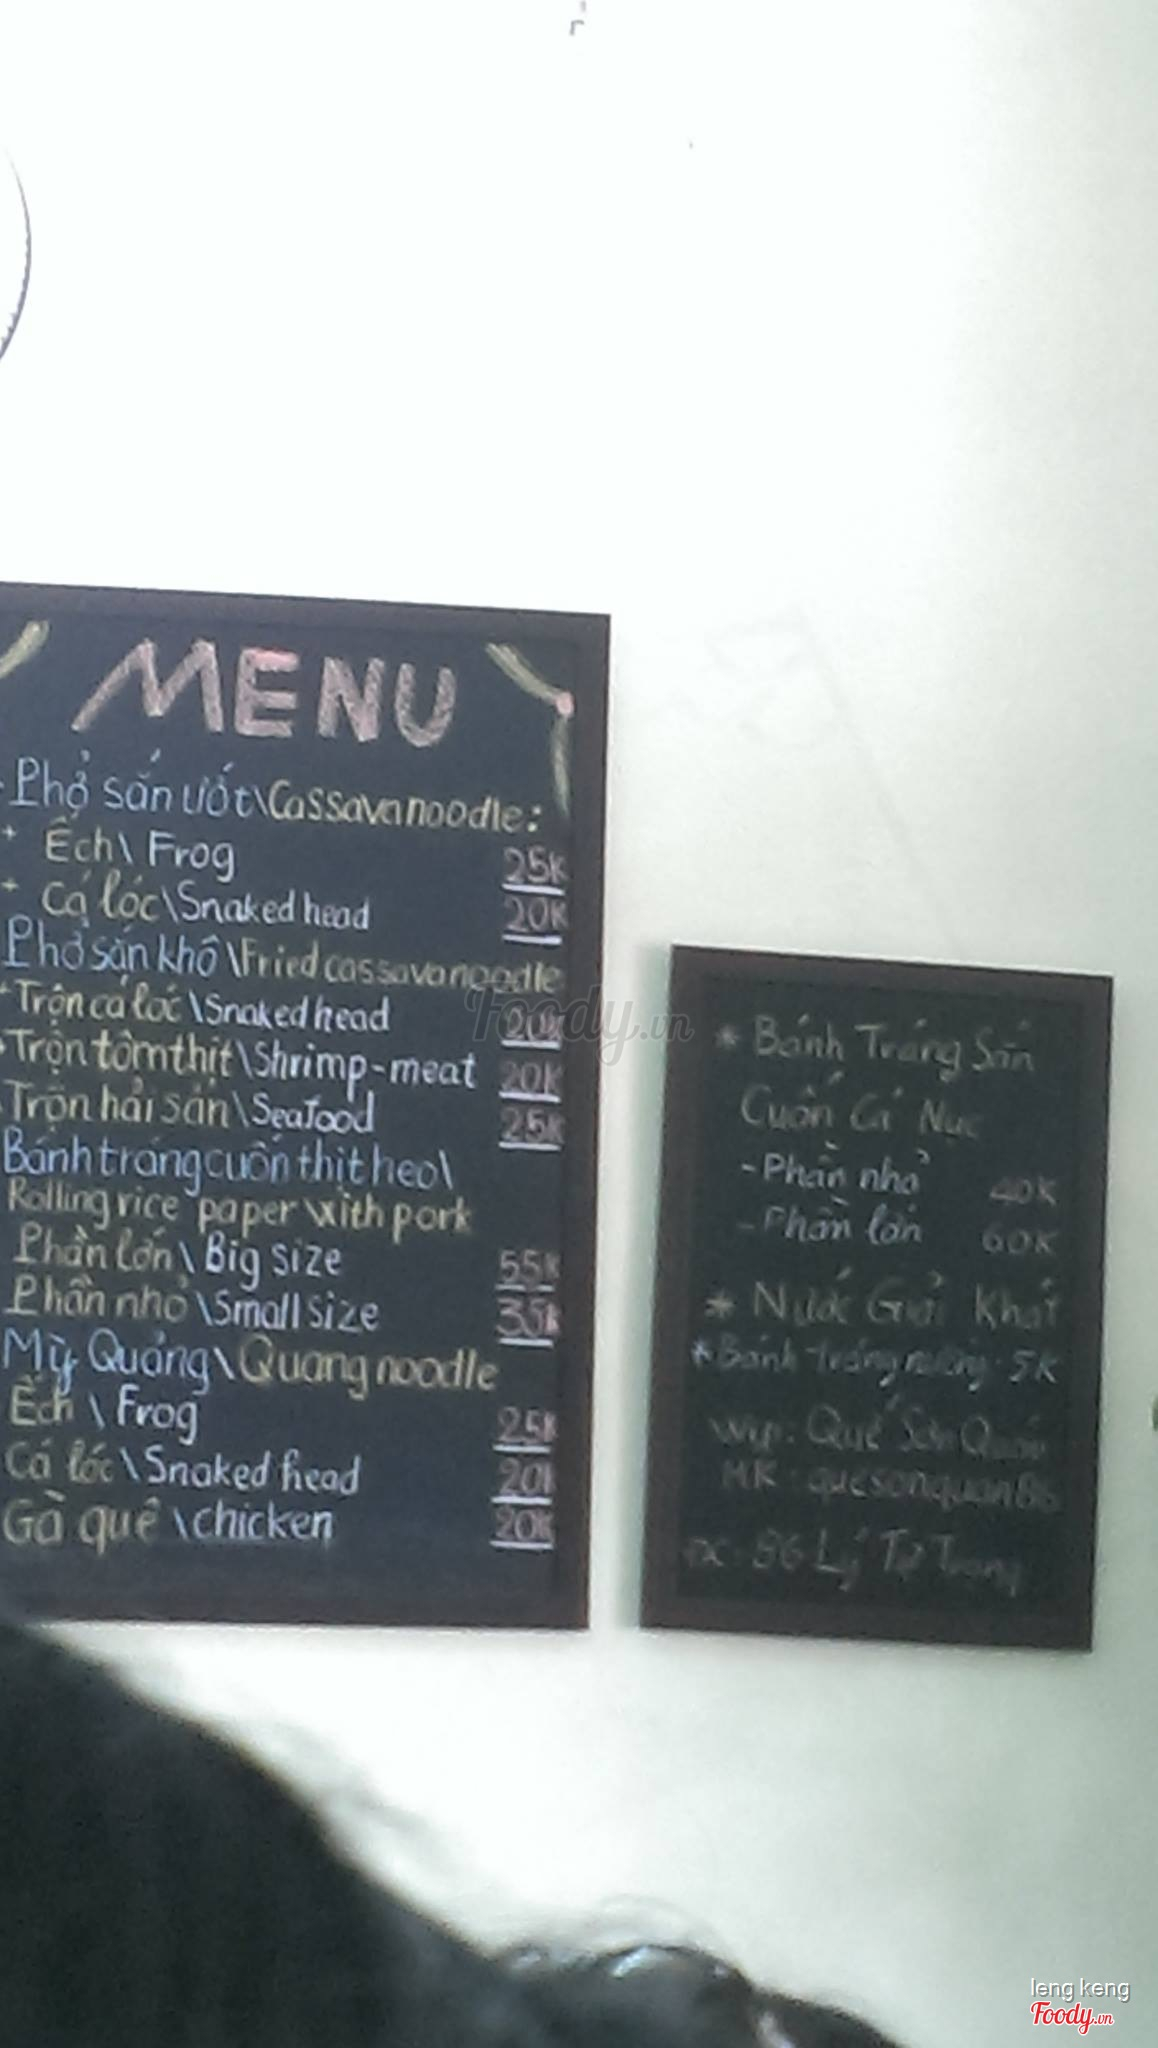 MENU
Phở sắn ướt\Cassava noodle:
+ Ếch\ Frog 25K
+ Cá lóc\Snaked head 20K
Phở sắn khô\Fried cassava noodle
+ Trộn cá lóc\Snaked head 20K
Trộn tôm thịt\Shrimp-meat 20K
Trộn hải sản\Seafood 25K
Bánh tráng cuốn thịt heo\
Rolling rice paper with pork
Phần lớn\Big size 55K
Phần nhỏ\Small size 35K
Mỳ Quảng\Quang noodle
Ếch\Frog 25K
Cá lóc\Snaked head 20K
Gà quê\chicken 20K
* Bánh Tráng Sắn
Cuốn Cá Nục
- Phần nhỏ 40K
- Phần lớn 60K
* Nước Giải Khát
* Bánh tráng nướng: 5K
Quế Sơn Quán
MK: quesonquan86
86 Lý Tự Trọng
Foody.vn
leng keng
Foody.vn